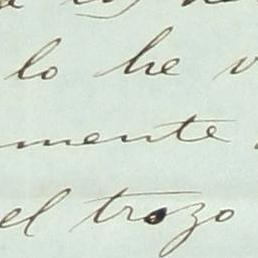 lo he
mente
el trozo